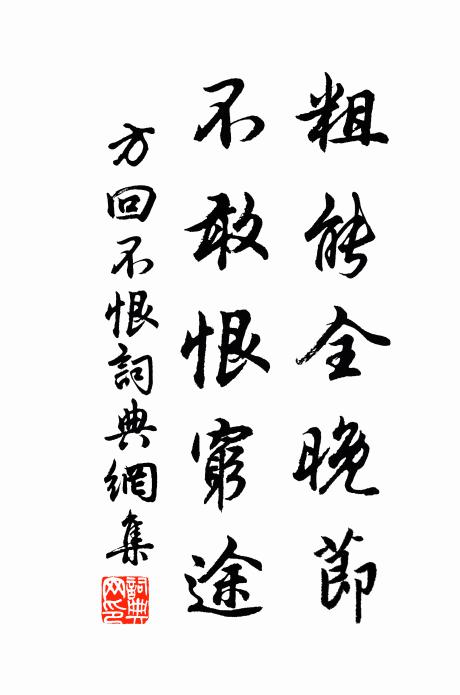 粗能全晚節
不敢恨窮途
方回不恨詞典網集
詞典網印